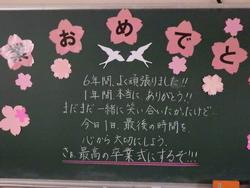 業おめでと
6年間、よく頑張りました!!
1年間本当にありがとう!!
まだまだ一緒に笑い合いたかたけど…
今日1日、最後の時間を
心から大切にしよう。
さぁ、最高の卒業式にするぞ!!!